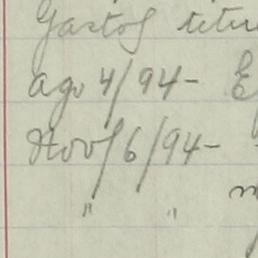 Gastos
Ago 4/94-
Nov/6/94-
" "